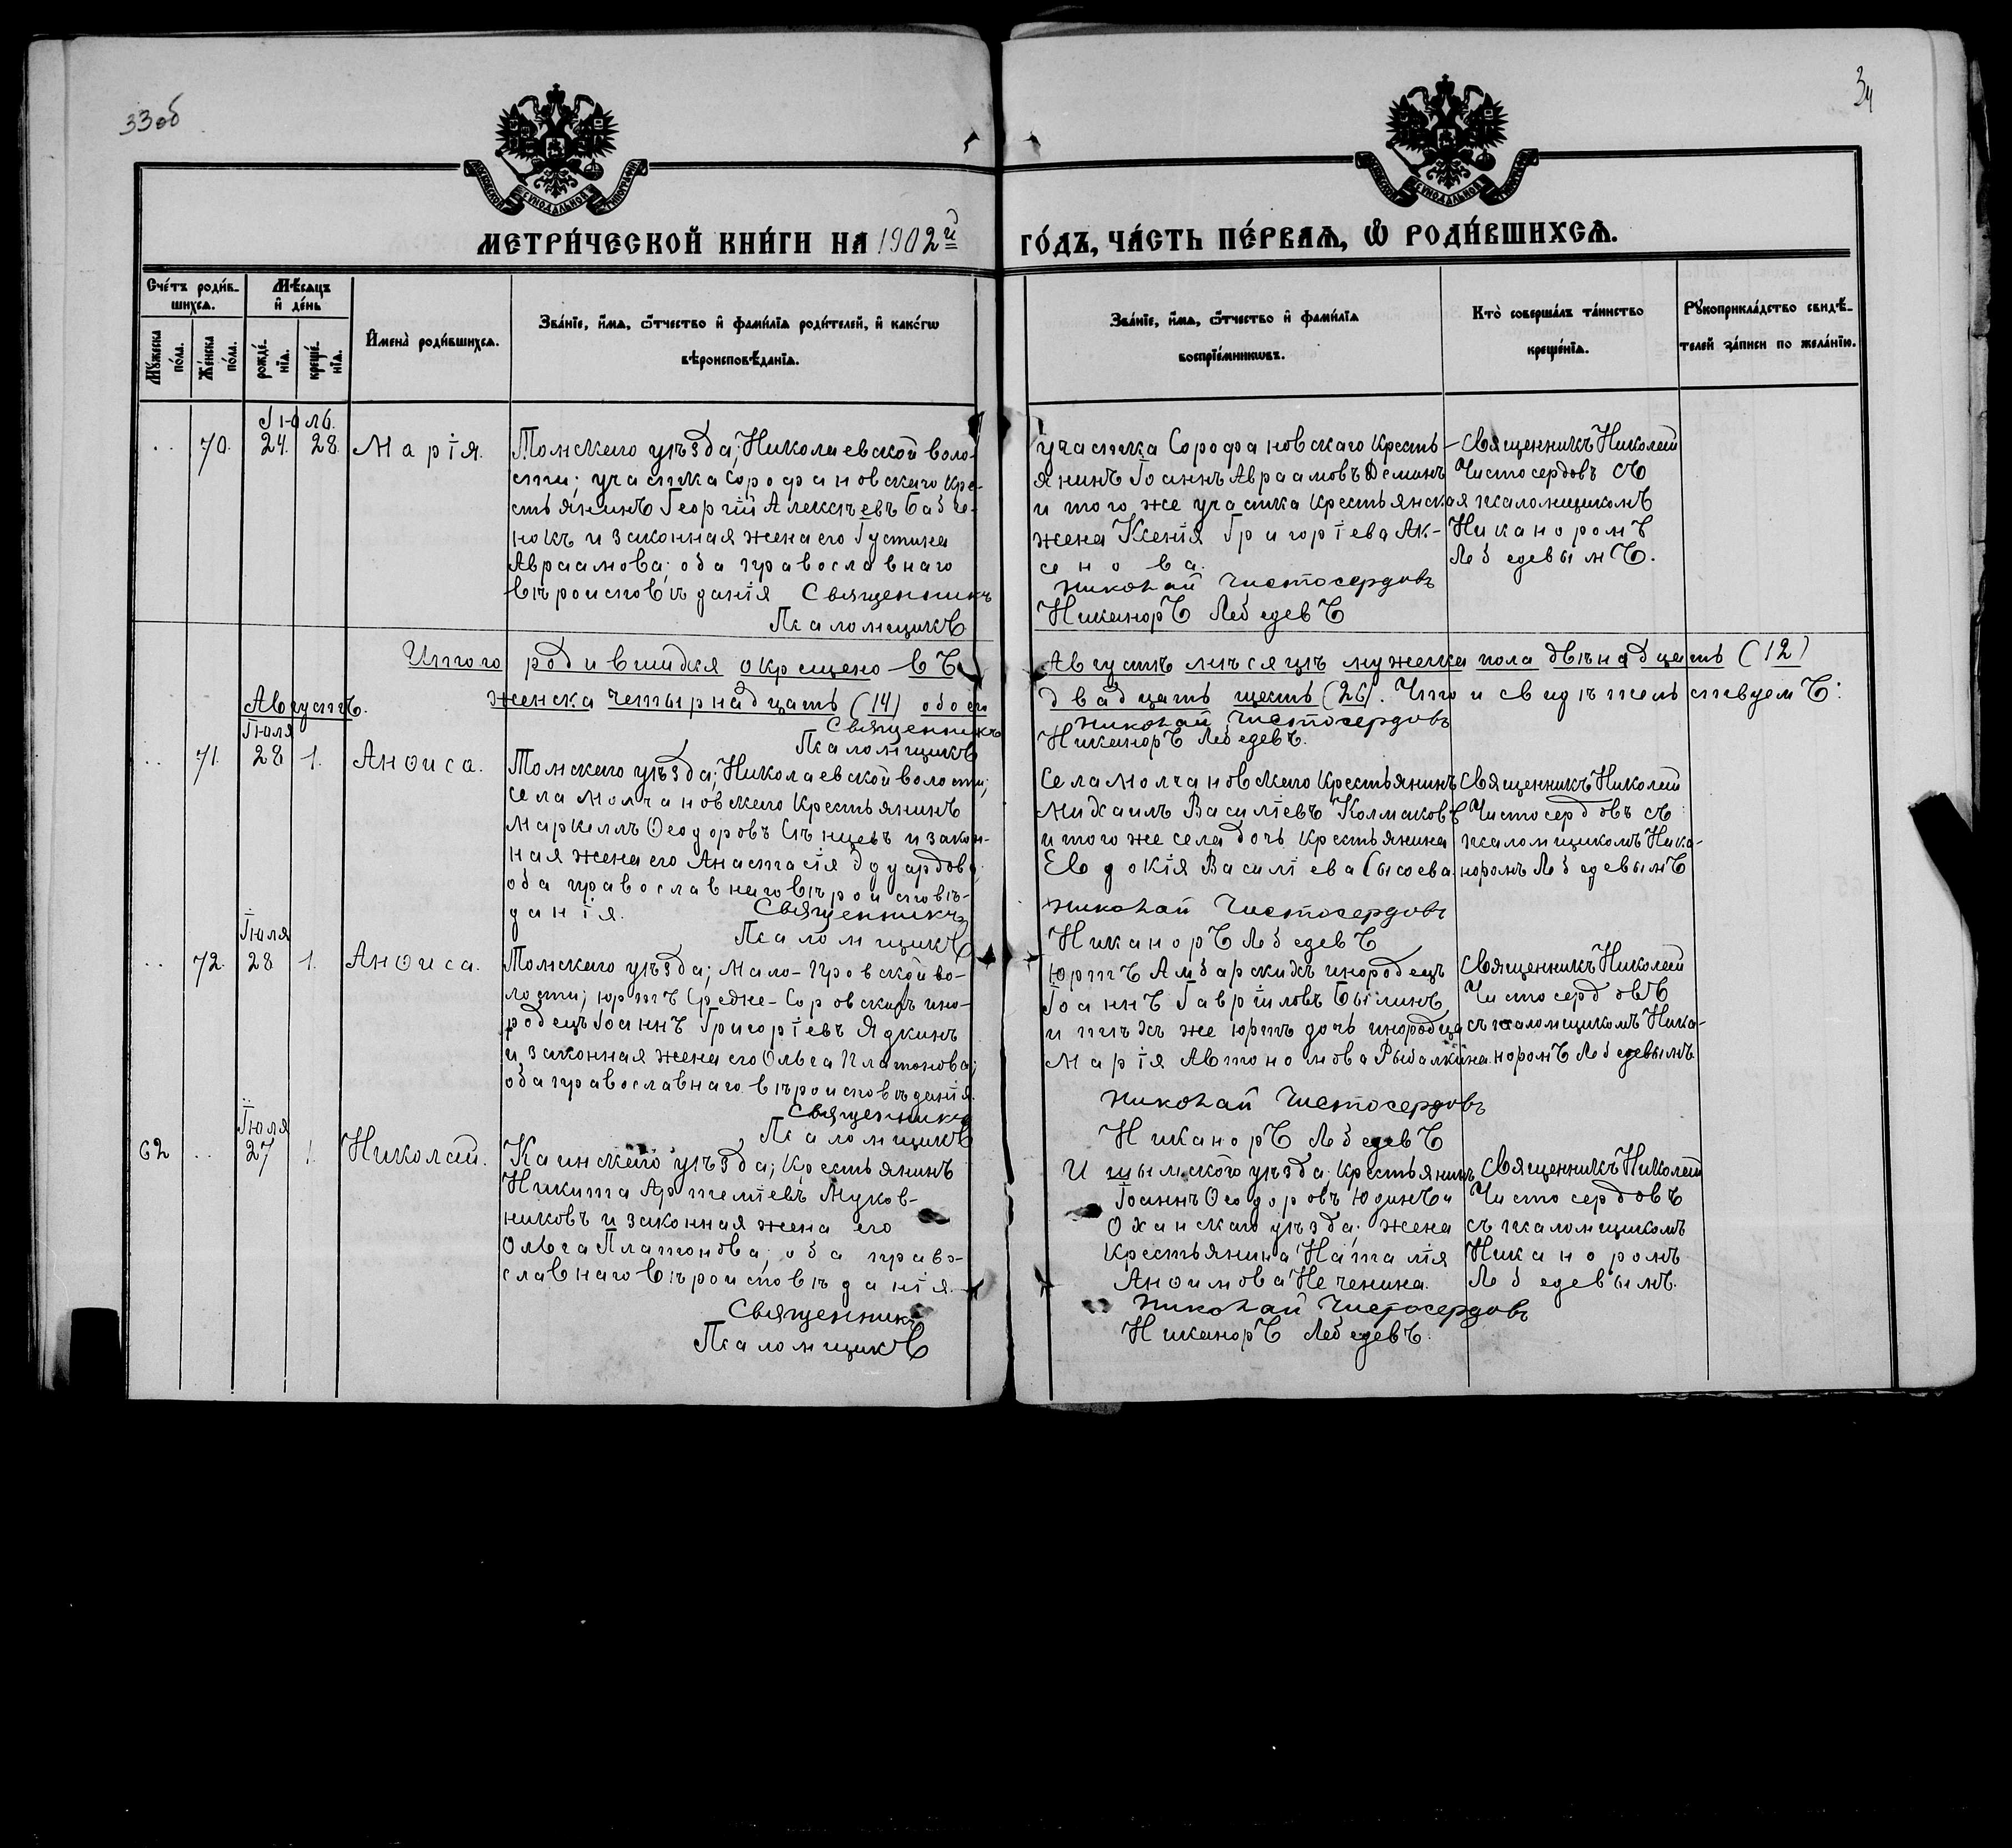 33об
34
МОСКОВСКОЙ СУНОДАЛЬНОЙ ТИПОГРАФІИ
МОСКОВСКОЙ СУНОДАЛЬНОЙ ТИПОГРАФІИ
МЕТРИ́ЧЕСКОЙ КНИ́ГИ НА 1902й ГО́ДЪ, ЧА́СТЬ ПЕ́РВАѦ, Ѡ РОДИ́ВШИХСѦ.
Сче́тъ роди́в-
шихсѧ.
Мꙋ́жеска по́ла.
Же́нска по́ла.
Мѣ́сѧцъ
и҆ де́нь
рожде́-
нїѧ.
креще́-
нїѧ.
И҆мена̀ роди́вшихсѧ.
Зва́нїе, и҆́мѧ, ѻ҆́тчество и҆ фамн́лїѧ роди́телей, и҆ како́гѡ
вѣроисповѣ́данїѧ.
Зва́нїе, и҆́мѧ, ѻ҆́тчество и҆ фами́лїѧ
воспрїе́мникѡвъ.
Кто̀ соверша́лъ та́инство
креще́нїѧ.
Рꙋкоприкла́дство свидѣ́-
телей за́писи по жела́нїю.
Іюль.
.. 70. 24. 28. Марія.
Томскаго уѣзда; Николаевской воло-
сти; участка Сорофановскаго кре-
стьянинъ Георгій Алексѣевъ Бабче-
нокъ и законная жена его Густина
Авраамова; оба православнаго
вѣроисповѣданія Священникъ
Псаломщикъ
участка Сорофановскаго кресть-
янинъ Іоаннъ Авраамовъ Деминъ
и того же участка крестьянская
жена Ксенія Григоріева Ак-
сенова.
Николай Чистосердовъ
Никаноръ Лебедевъ
Священникъ Николай
Чистосердовъ съ
псаломщикомъ
Никаноромъ
Лебедевымъ.
Итого родившихся окрещено въ Августѣ мѣсяцѣ мужеска пола двѣнадцать (12)
женска четырнадцать (14) обоего двадцать шесть (26). Что и свидѣтельствуемъ:
Священникъ Николай Чистосердовъ
Псаломщикъ Никаноръ Лебедевъ.
Августъ.
Іюля
.. 71. 28 1. Анѳиса.
Томскаго уѣзда; Николаевской волости;
села Молчановскаго крестьянинъ
Маркеллъ Ѳеодоровъ Сѣнцевъ и закон-
ная жена его Анастасія Эдуардова;
оба православнаго вѣроисповѣ-
данія. Священникъ
Псаломщикъ
Села Молчановскаго крестьянинъ
Михаилъ Василіевъ Колмаковъ
и того же села дочь крестьянина
Евдокія Василіева Сысоева.
Николай Чистосердовъ
Никаноръ Лебедевъ
Священникъ Николай
Чистосердовъ съ
псаломщикомъ Ника-
норомъ Лебедевымъ
Іюля
.. 72. 28 1. Анѳиса.
Томскаго уѣзда; Мало-Чровской во-
лости; юртъ Средне-Соровскихъ ино-
родецъ Іоаннъ Григоріевъ Ядкинъ
и законная жена его Ольга Платонова;
оба православнаго вѣроисповѣданія.
Священникъ
Псаломщикъ
Юртъ Амбарскихъ инородецъ
Іоаннъ Гавріиловъ Былинъ
и тѣхъ же юртъ дочь инородца
Марія Автономова Рыбалкина.
Николай Чистосердовъ
Никаноръ Лебедевъ
Священникъ Николай
Чистосердовъ
съ псаломщикомъ Ника-
норомъ Лебедевымъ.
Іюля
62 .. 27 1. Николай.
Каинскаго уѣзда; крестьянинъ
Никита Артеміевъ Муков-
никовъ и законная жена его
Ольга Платонова; оба право-
славнаго вѣроисповѣданія.
Священникъ
Псаломщикъ
Ишымскаго уѣзда крестьянинъ
Іоаннъ Ѳеодоровъ Юдинъ и
Оханскаго уѣзда жена
крестьянина Наталія
Анѳимова Неченина.
Николай Чистосердовъ
Никаноръ Лебедевъ.
Священникъ Николай
Чистосердовъ
съ псаломщикомъ
Никаноромъ
Лебедевымъ.